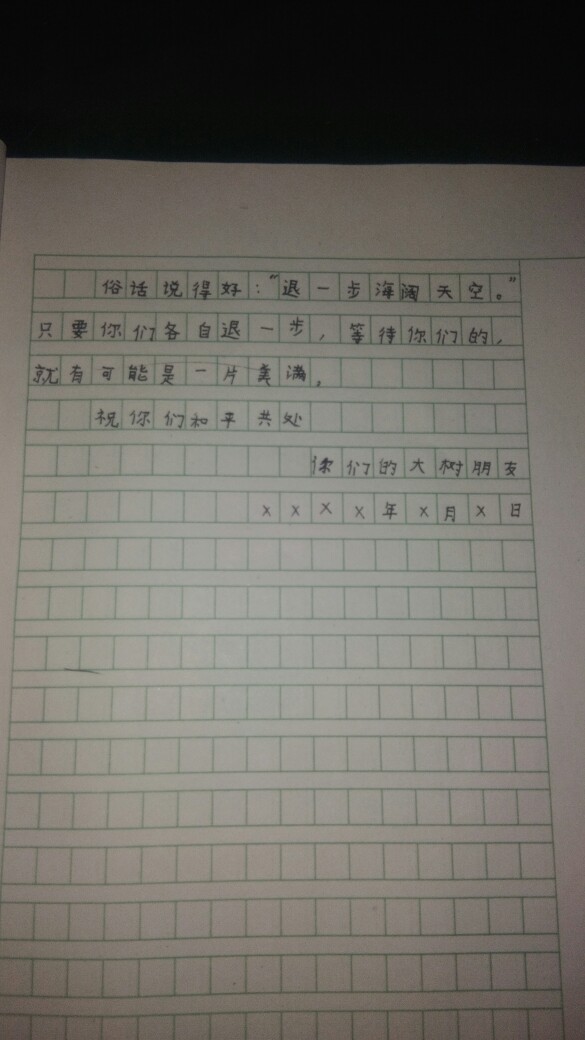 俗话说得好："退一步海阔天空。"
只要你们各自退一步，等待你们的，
就有可能是一片美满。
祝你们和平共处
你们的大树朋友
××××年×月×日